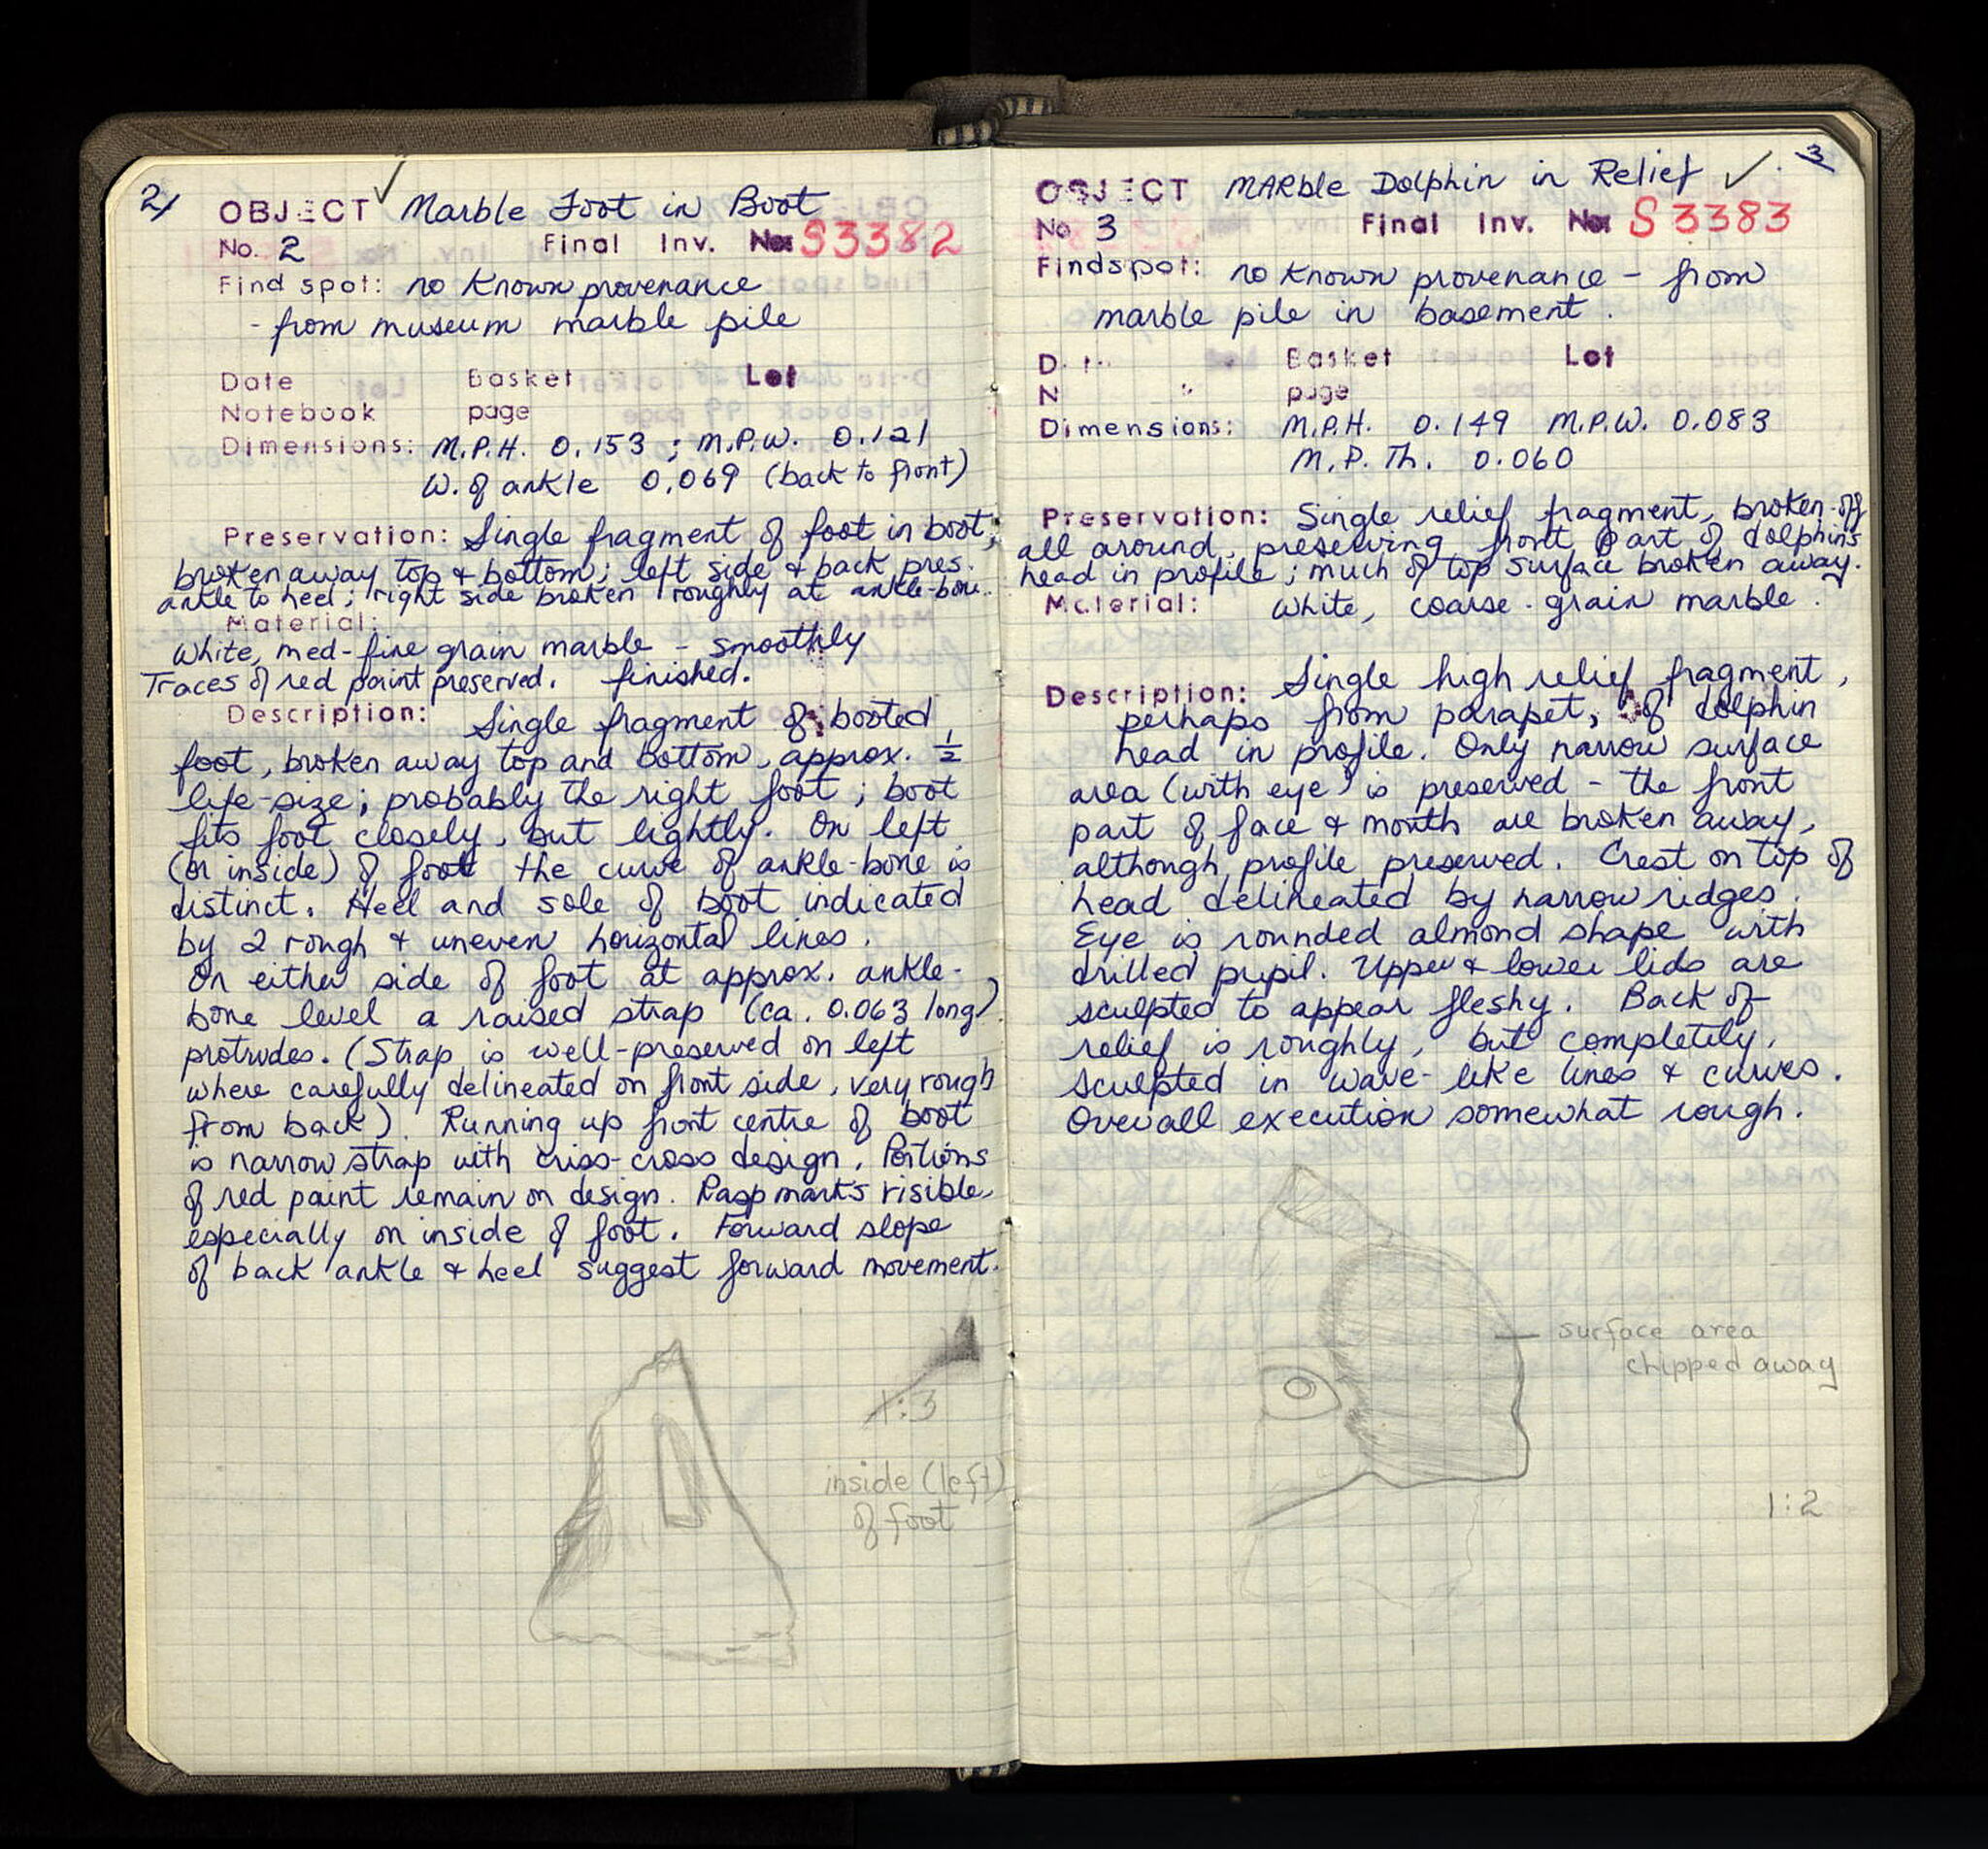 2/
OBJECT ✓ Marble Foot in Boot
No. 2 Final Inv. No. S3382
Find spot: no known provenance
- from museum marble pile
Date Basket Lot
Notebook page
Dimensions: M.P.H. 0.153 ; M.P.W. 0.121
W. of ankle 0.069 (back to front)
Preservation: Single fragment of foot in boot;
broken away top & bottom; left side & back pres.
ankle to heel; right side broken roughly at ankle-bone.
Material:
White, med-fine grain marble - smoothly
Traces of red paint preserved. finished.
Description: Single fragment of booted
foot, broken away top and bottom, approx. 1/2
life-size; probably the right foot; boot
fits foot closely, but lightly. On left
(or inside) of foot the curve of ankle-bone is
distinct. Heel and sole of boot indicated
by 2 rough & uneven horizontal lines.
On either side of foot at approx. ankle-
bone level a raised strap (ca. 0.063 long)
protrudes. (Strap is well-preserved on left
where carefully delineated on front side, very rough
from back). Running up front centre of boot
is narrow strap with criss-cross design. Portions
of red paint remain on design. Rasp marks visible,
especially on inside of foot. Forward slope
of back ankle & heel suggest forward movement.
1:3
inside (left)
of foot
3
OBJECT Marble Dolphin in Relief ✓
No 3 Final Inv. No. S 3383
Findspot: no known provenance - from
marble pile in basement.
D Basket Lot
N page
Dimensions: M.P.H. 0.149 M.P.W. 0.083
M.P.Th. 0.060
Preservation: Single relief fragment, broken-off
all around, preserving front part of dolphin's
head in profile; much of top surface broken away.
Material: White, coarse-grain marble.
Description: Single high relief fragment,
perhaps from parapet, of dolphin
head in profile. Only narrow surface
area (with eye) is preserved - the front
part of face & mouth are broken away,
although profile preserved. Crest on top of
head delineated by narrow ridges.
Eye is rounded almond shape with
drilled pupil. Upper & lower lids are
sculpted to appear fleshy. Back of
relief is roughly, but completely,
sculpted in wave-like lines & curves.
Overall execution somewhat rough.
surface area
chipped away
1:2